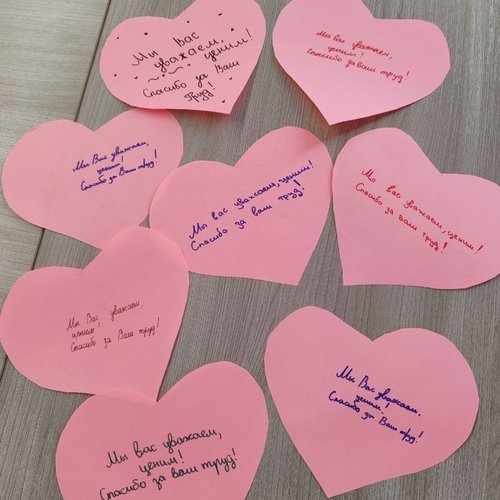 Мы Вас
уважаем, ценим!
Спасибо за Ваш
Труд!
Мы вас уважаем,
ценим!
Спасибо за ваш труд!
Мы Вас уважаем,
ценим!
Спасибо за Ваш труд!
Мы вас уважаем, ценим!
Спасибо за ваш труд!
Мы вас уважаем, ценим!
Спасибо за ваш труд!
Мы Вас уважаем,
ценим!
Спасибо за Ваш труд!
Мы Вас уважаем,
ценим!
Спасибо за Ваш труд!
Мы вас уважаем,
ценим!
Спасибо за ваш труд!